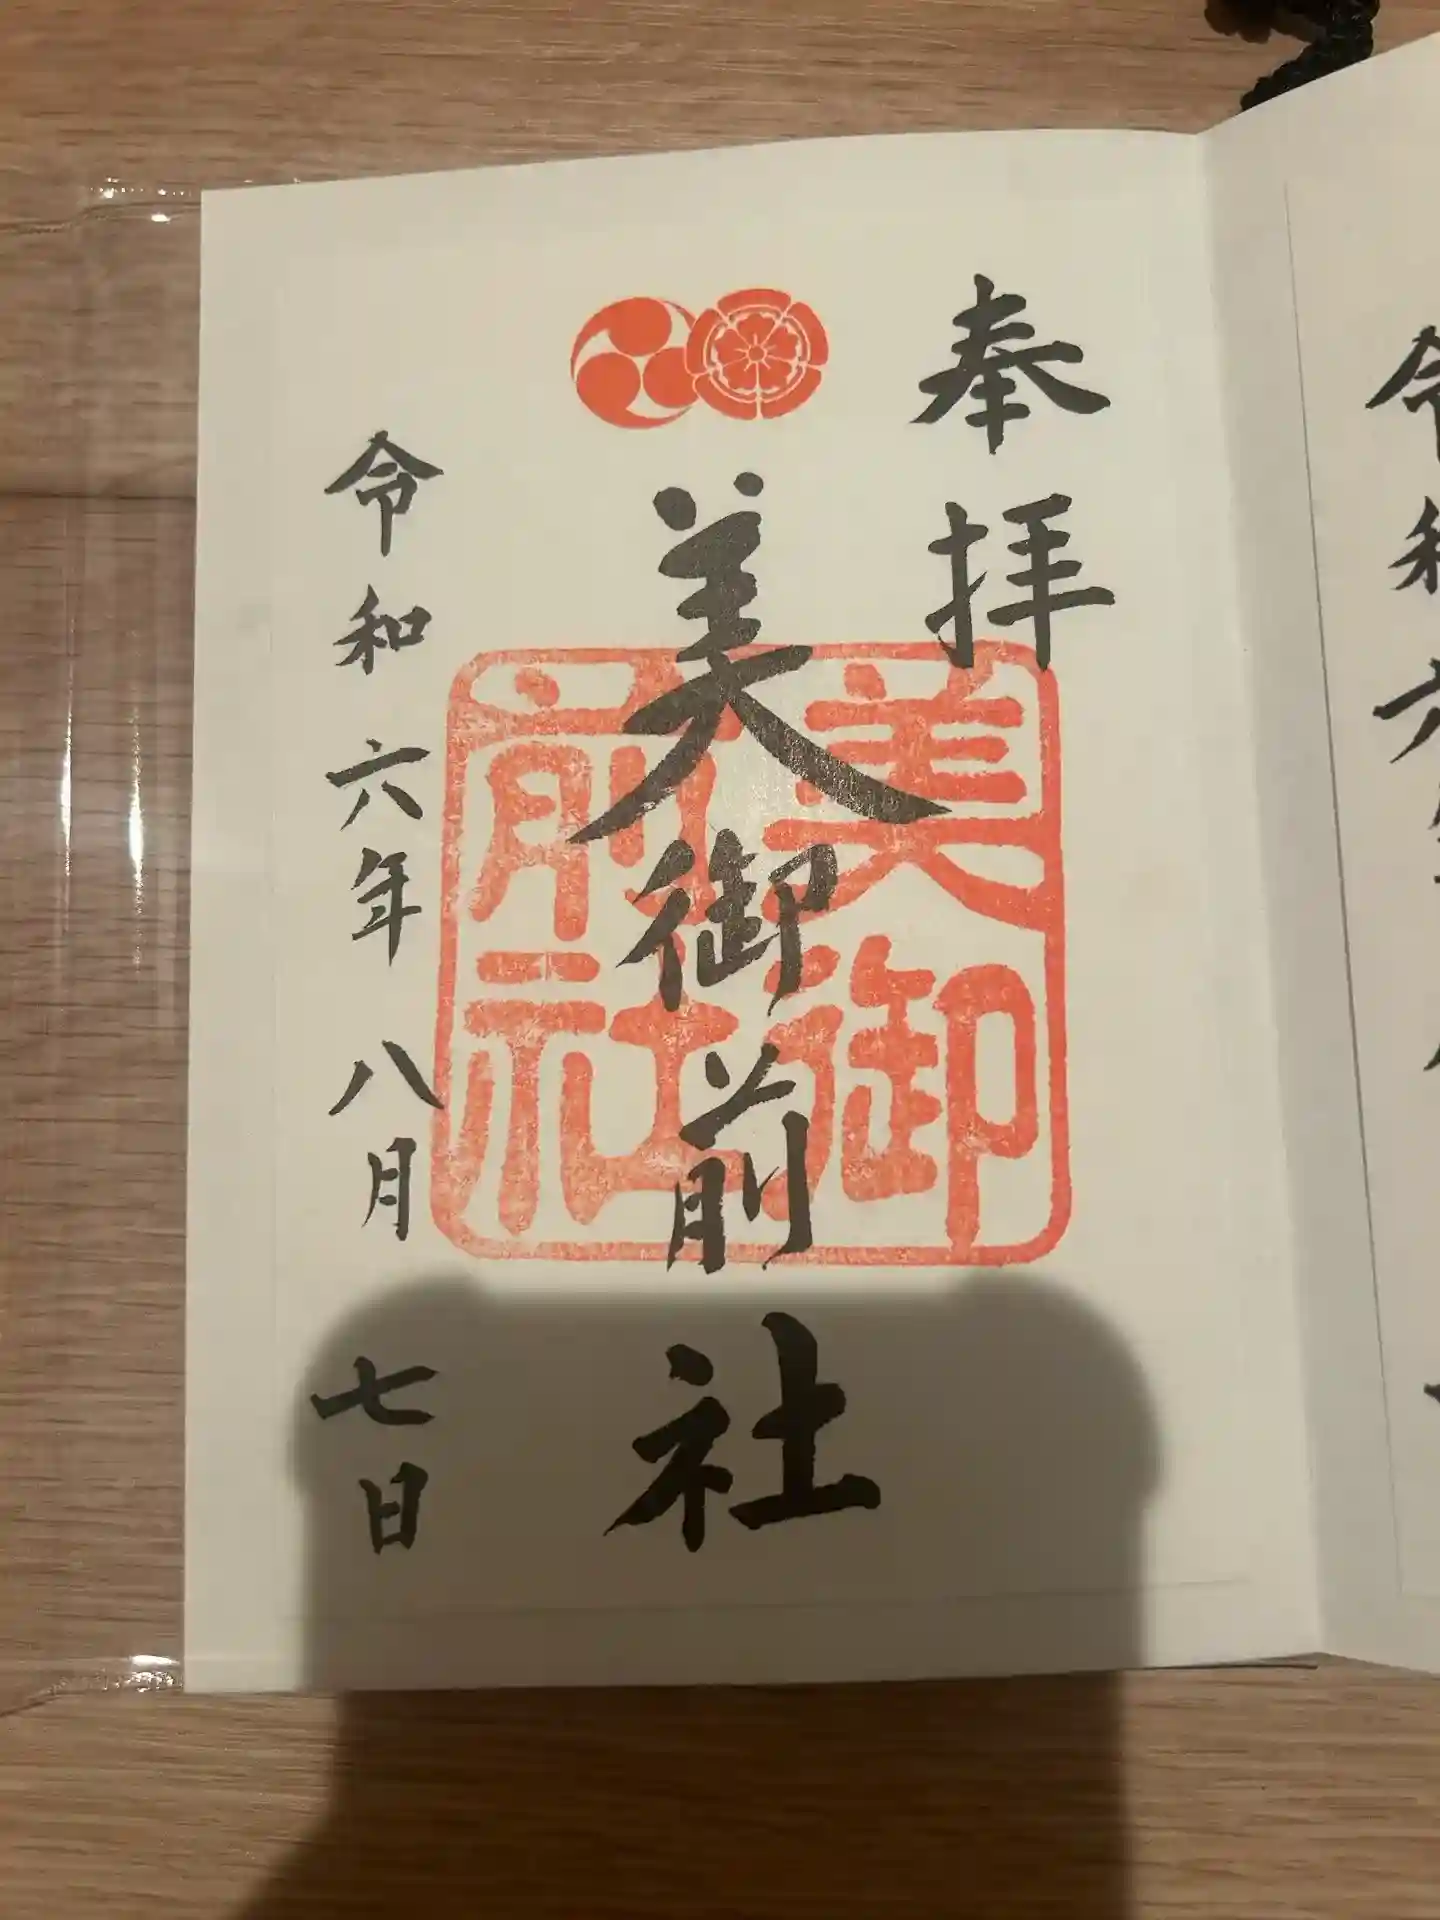 奉拝
美御前社
美御前社
令和六年八月七日
令和六